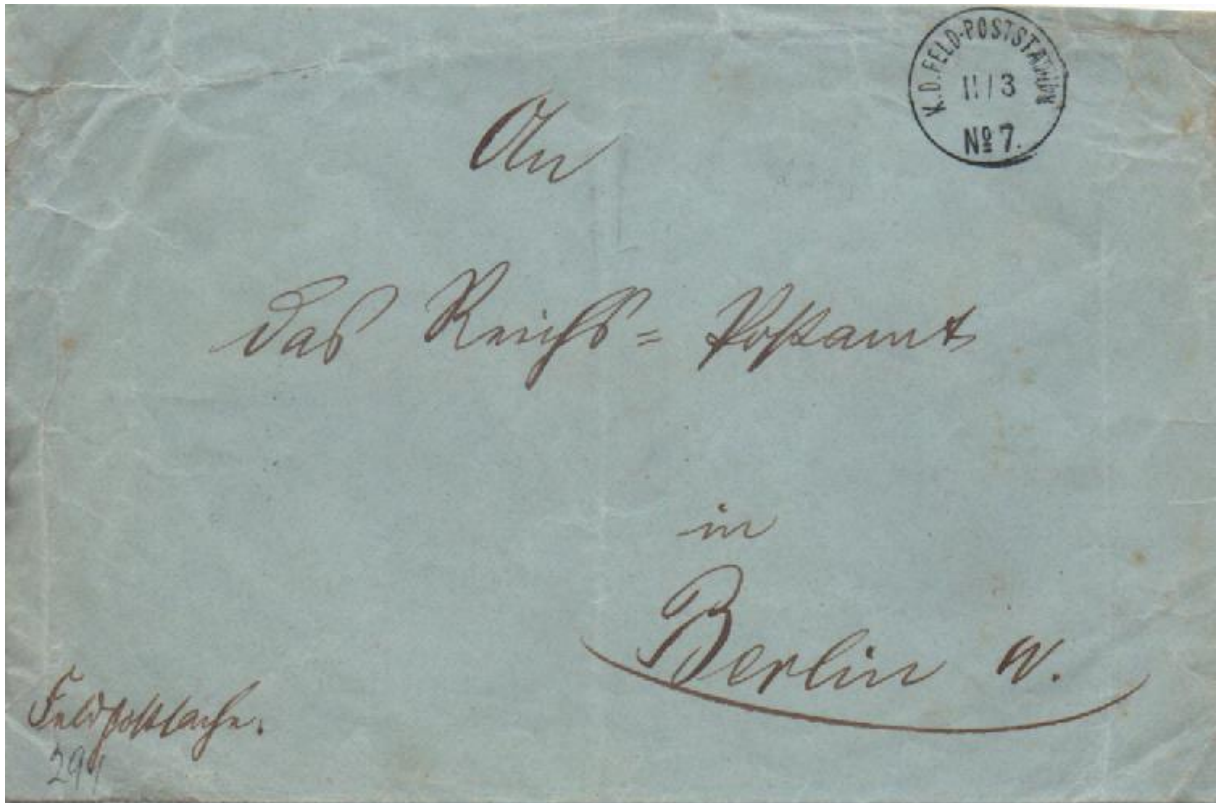 K.D. FELD-POSTSTATION
11/3
Nº 7.
An
das Reichs= Postamt
in
Berlin W.
Feldpostsache.
294